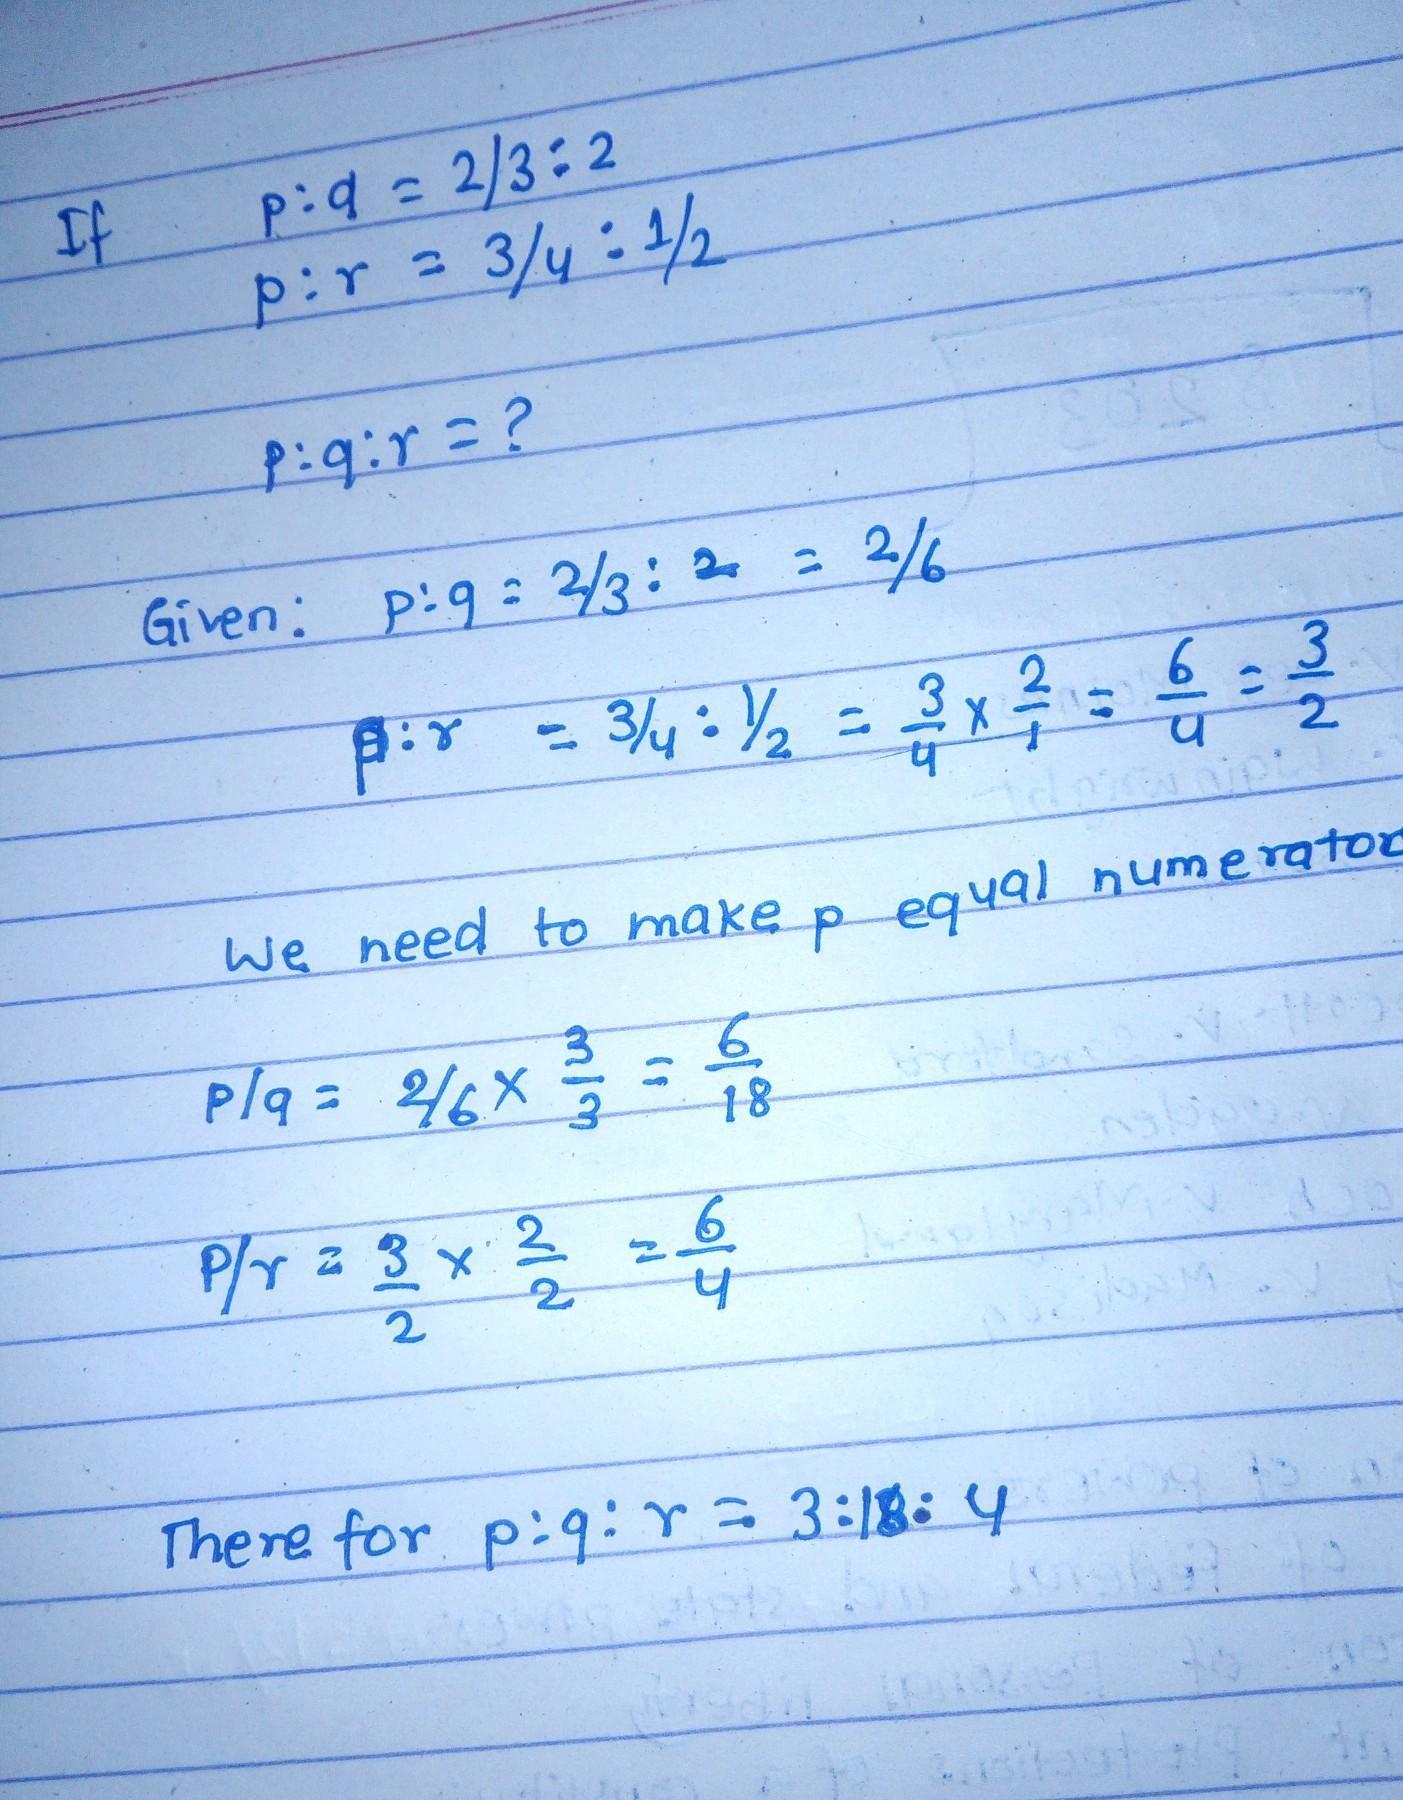 If p:q = 2/3:2
p:r = 3/4:1/2
p:q:r = ?
Given: p:q = 2/3:2 = 2/6
p:r = 3/4:1/2 = 3/4 x 2/1 = 6/4 = 3/2
We need to make p equal numerator
p/q = 2/6 x 3/3 = 6/18
P/r = 3/2 x 2/2 = 6/4
There for p:q:r = 3:18:4